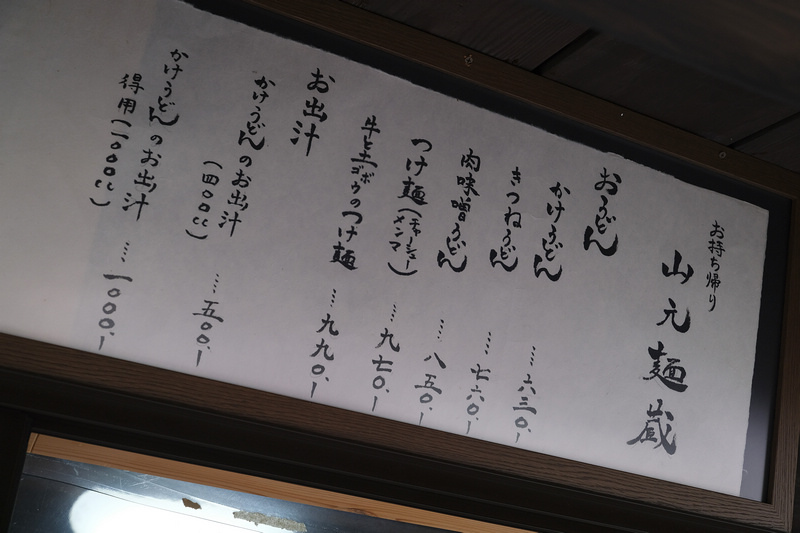 お持ち帰り
山元麺蔵
おうどん
かけうどん……六三〇.ー
きつねうどん……七六〇.ー
肉味噌うどん……八五〇.ー
つけ麺(チャーシューメンマ)……九七〇.ー
牛と土ゴボウのつけ麺……九九〇.ー
お出汁
かけうどんのお出汁
(四〇〇cc)……五〇〇.ー
かけうどんのお出汁
得用(一〇〇〇cc)……一〇〇〇.ー